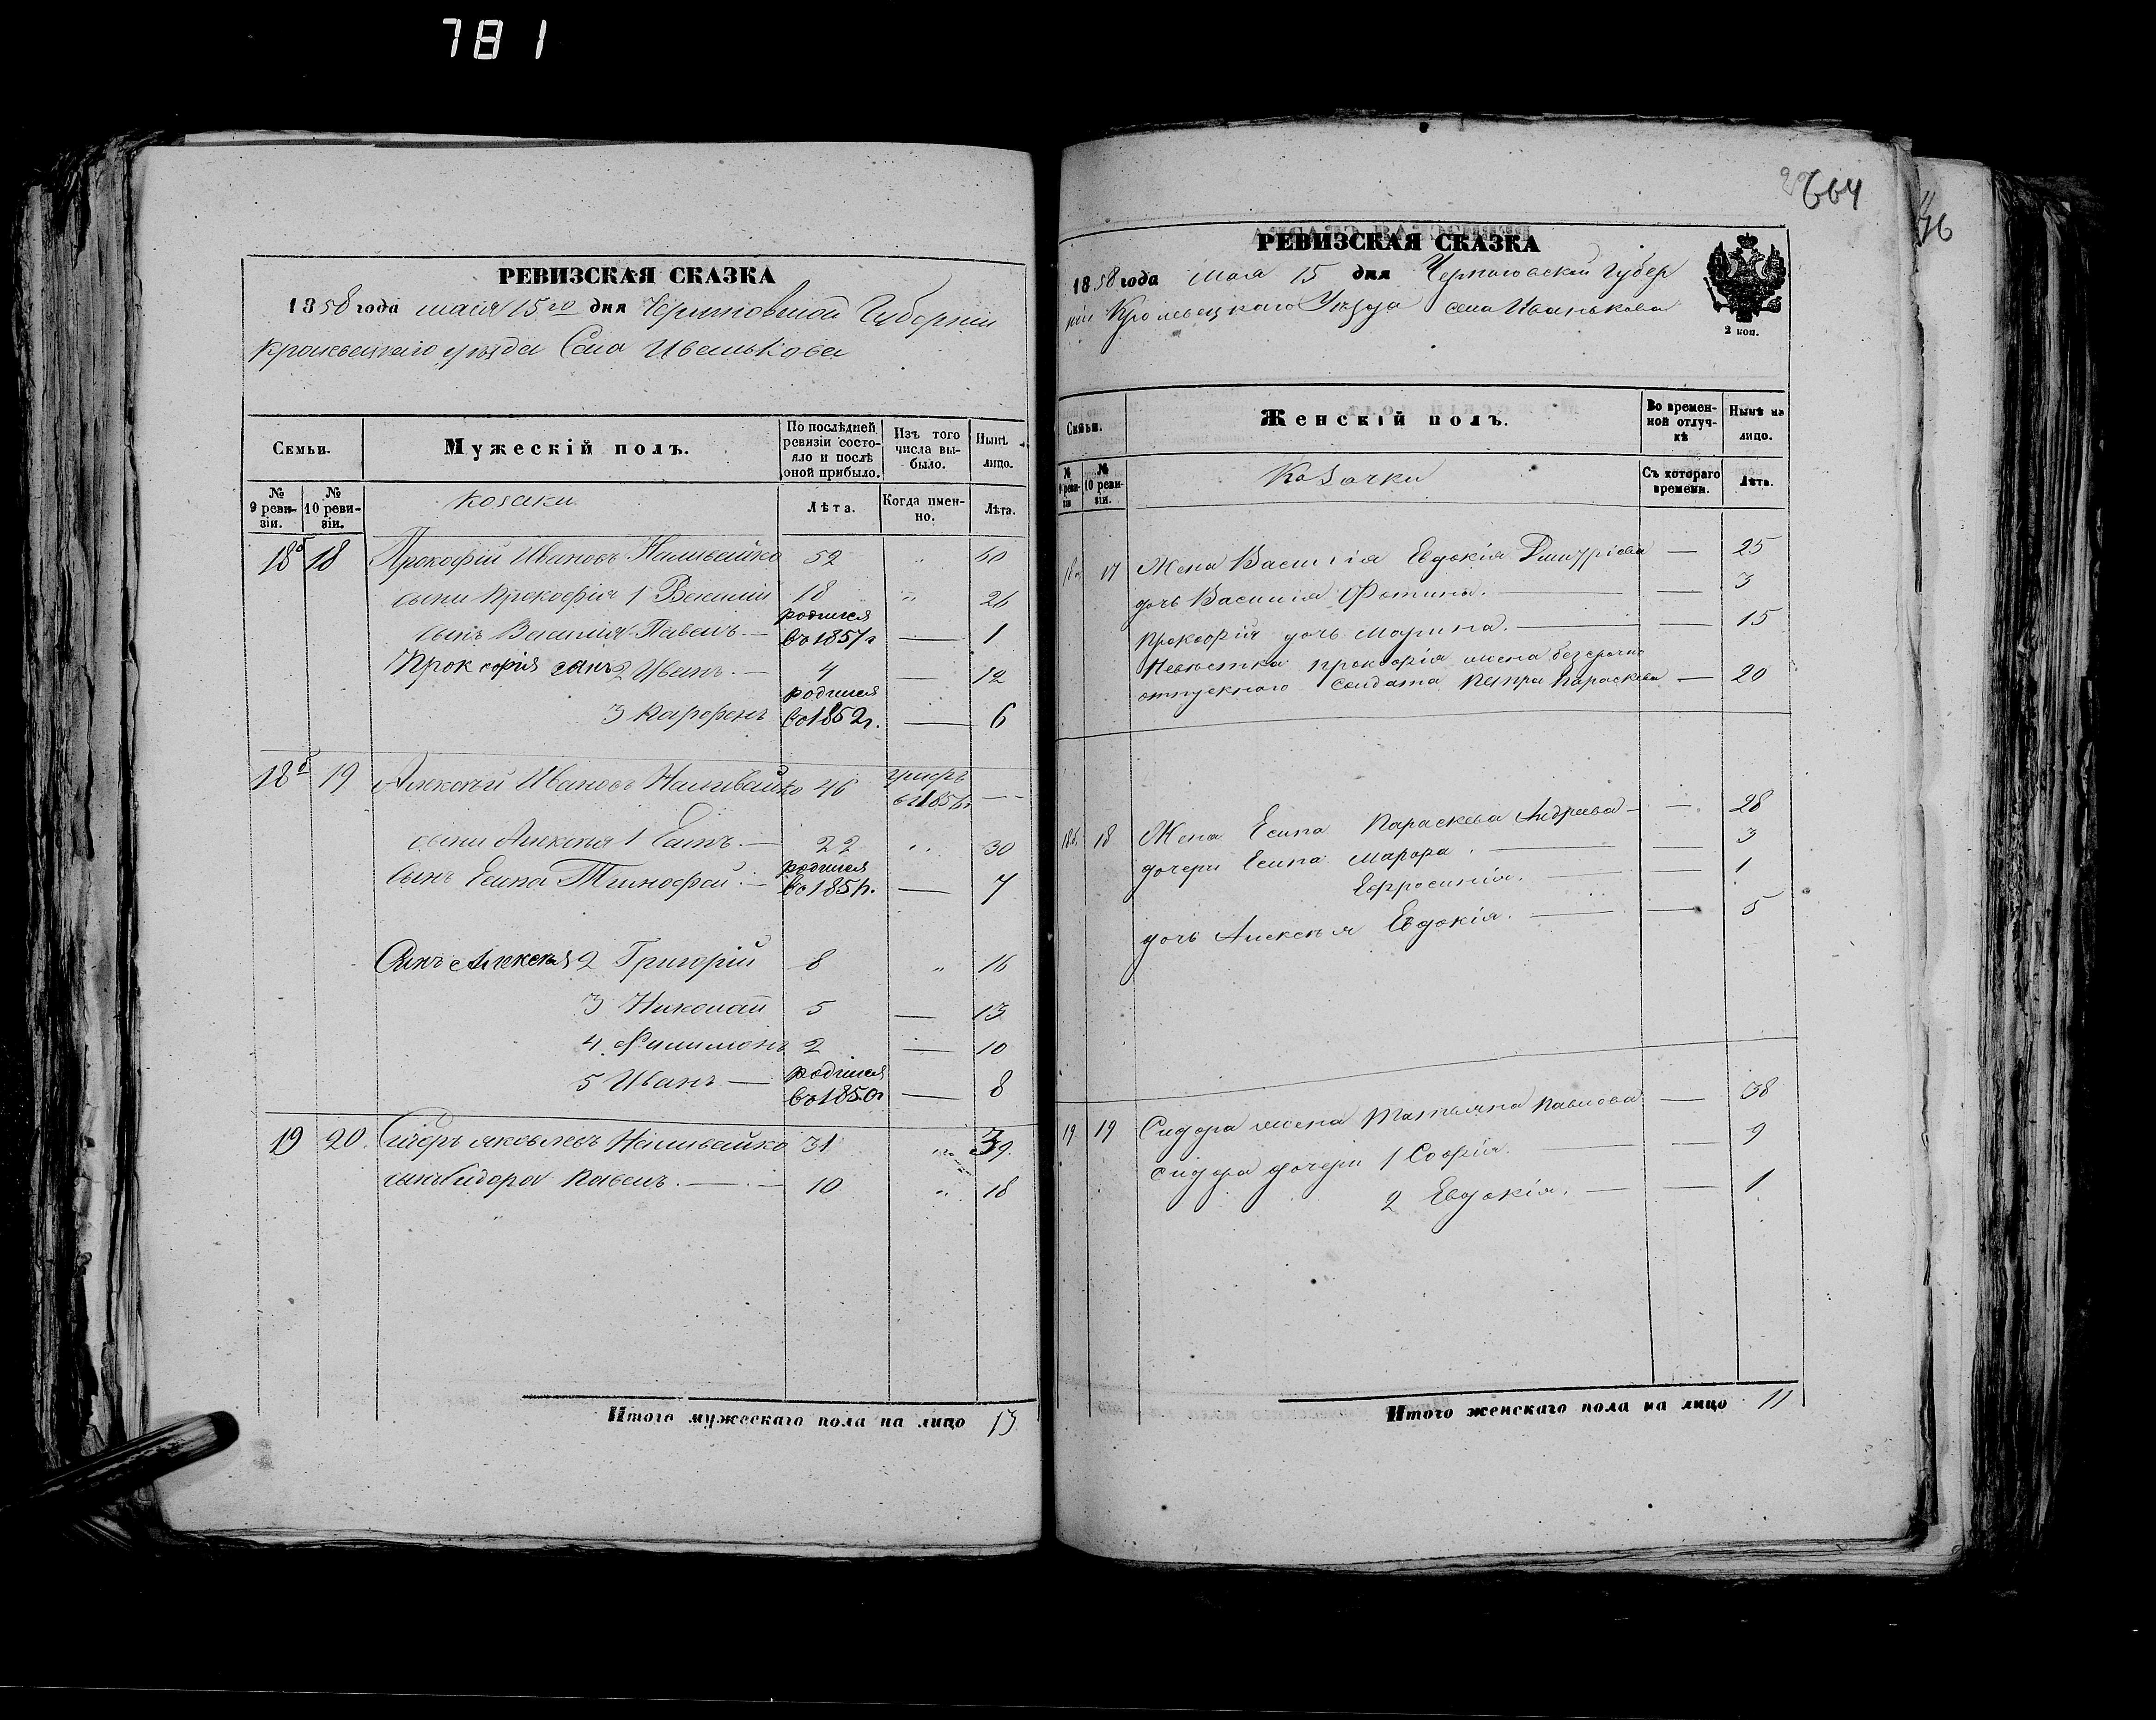 781
РЕВИЗСКАЯ СКАЗКА
1858 года мая 15го дня Черниговской Губерніи
Кролевецкаго уезда Села Иванькова
Семьи.
Мужескій полъ.
По послѣдней ревизіи состо-
яло и послѣ
оной прибыло.
Изъ того
числа вы-
было.
Нынѣ
лицо.
№
9 реви-
зіи.
№
10 реви-
зіи.
Козаки
Лѣта.
Когда имен-
но.
Лѣта.
18а 18 Прокофій Ивановъ Наливайко 52 " 60
сыни Прокофія 1 Василій 18 " 26
сынъ Василія Павелъ. — родился въ 1857г — 1
Прокофія сынъ 2 Иванъ. — 4 — 12
3 Парфенъ родился въ 1852г. — 6
18б 19 Алексѣй Ивановъ Наливайко 46 умеръ въ 1856г —
сыни Алексѣя 1 Есипъ. — 22 " 30
сынъ Есипа Тимофей. — родился въ 1851г. — 7
Сынъ Алексѣя 2 Григорій 8 " 16
3 Николай 5 — 13
4 Филимонъ 2 — 10
5 Иванъ — родился въ 1850г — 8
19 20. Сидоръ Яковлевъ Наливайко 31 " 39.
сынъ Сидора Павелъ. — 10 " 18
Итого мужескаго пола на лицо 13
664
РЕВИЗСКАЯ СКАЗКА
1858 года Мая 15 дня Черниговской Губер
ніи Кролевецкаго Уѣзда села Иванькова
2 коп.
Семьи.
Женскій полъ.
Во времен-
ной отлуч-
кѣ
Нынѣ на
лицо.
№
9 реви-
зіи
№
10 реви-
зіи.
Козачки
Съ котораго
времени.
Лѣта.
18а 17 Жена Василія Евдокія Дмитріева — 25
дочь Василія Фотина. — 3
Прокофія дочь Марина. — 15
Невѣстка Прокофія жена безсрочно
отпускного Солдата Петра Параскева — 20
18б. 18 Жена Есипа Параскева Андреева — 28
дочери Есипа Марфа. — 3
Ефросинія. — 1
дочь Алексѣя Евдокія. — 5
19 19 Сидора жена Татьяна Павлова — 38
Сидора дочери 1 Софія. — 9
2 Евдокія. — 1
Итого женскаго пола на лицо 11